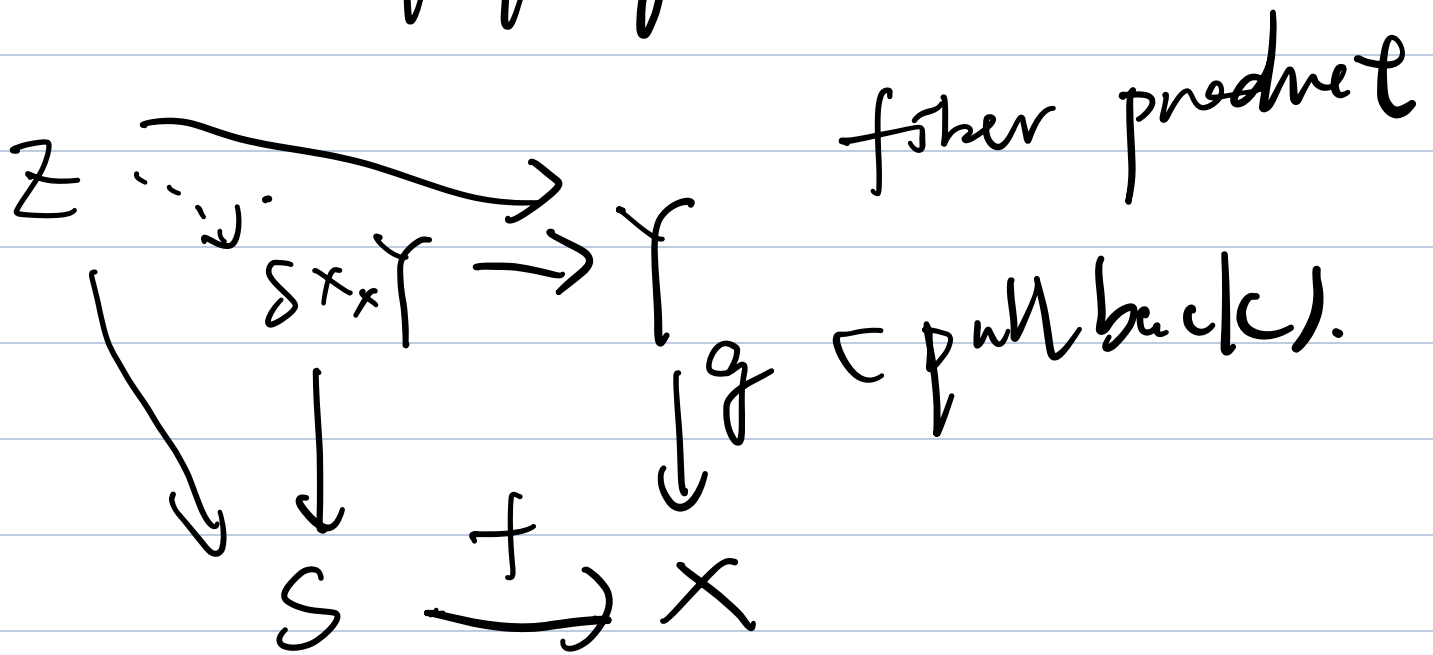 fiber product
Z
S ×ₓ Y → Y
g (pullback).
f
S → X